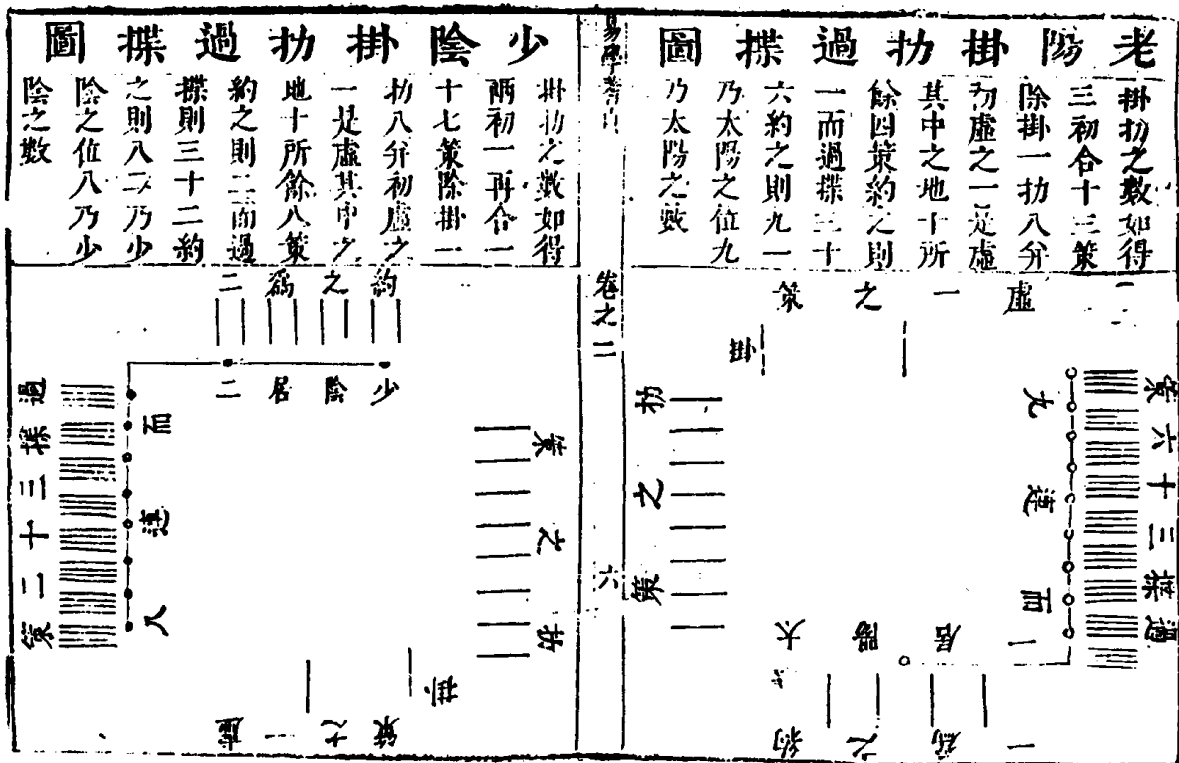 老陽掛扐過揲圖
掛扐之數如得
三初合十三策
除掛一扐八并
初虛之一是虛
其中之地十所
餘四策約之則
一而過揲三十
六約之則九一
乃太陽之位九
乃太陽之數
虛一之策
掛
扐之策
過揲三十六策
九連而一
太陽居一
約之爲一
易學蓍貞
卷之二
六
少陰掛扐過揲圖
掛扐之數如得
兩初一再合一
十七策除掛一
扐八并初虛之
一是虛其中之
地十所餘八策
約之則二而過
揲則三十二約
之則八二乃少
陰之位八乃少
陰之數
約之爲二
少陰居二
過揲三十二策
而連八
扐之策
掛
虛一之策